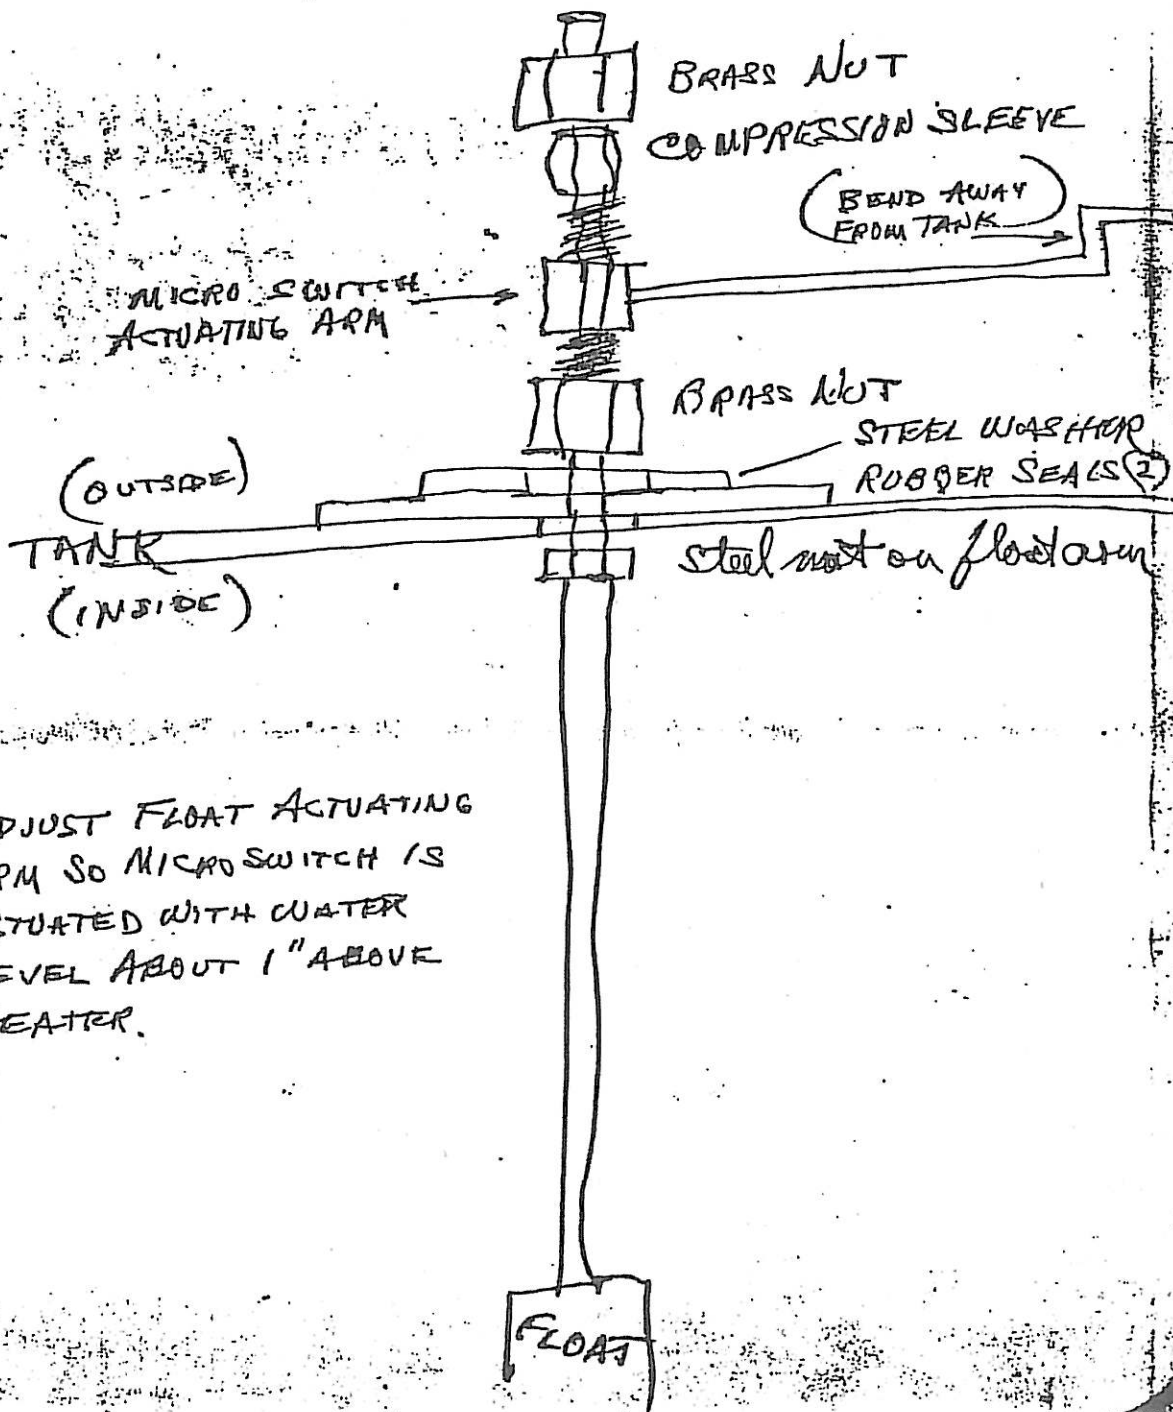 BRASS NUT
COMPRESSION SLEEVE
(BEND AWAY
FROM TANK)
MICRO SWITCH
ACTUATING ARM
BRASS NUT
STEEL WASHER
RUBBER SEALS (2)
(OUTSIDE)
TANK
Steel nut on float arm
(INSIDE)
DJUST FLOAT ACTUATING
RM SO MICRO SWITCH IS
CTUATED WITH WATER
EVEL ABOUT 1" ABOVE
EATER.
FLOAT